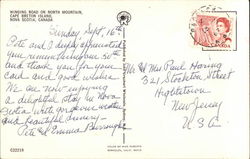 WINDING ROAD ON NORTH MOUNTAIN,
CAPE BRETON ISLAND,
NOVA SCOTIA, CANADA
Sunday, Sept. 16th
Pete and I deeply appreciated
your remembering our 50th
and thank you for your
card and good wishes.
We are now enjoying
a delightful stay in Nova
Scotia with gorgeous weather
and beautiful scenery.
Pete & Emma
Mr & Mrs Paul Haring
321 Stockton Street
Hightstown
New Jersey
U.S.A
CANADA
C22219